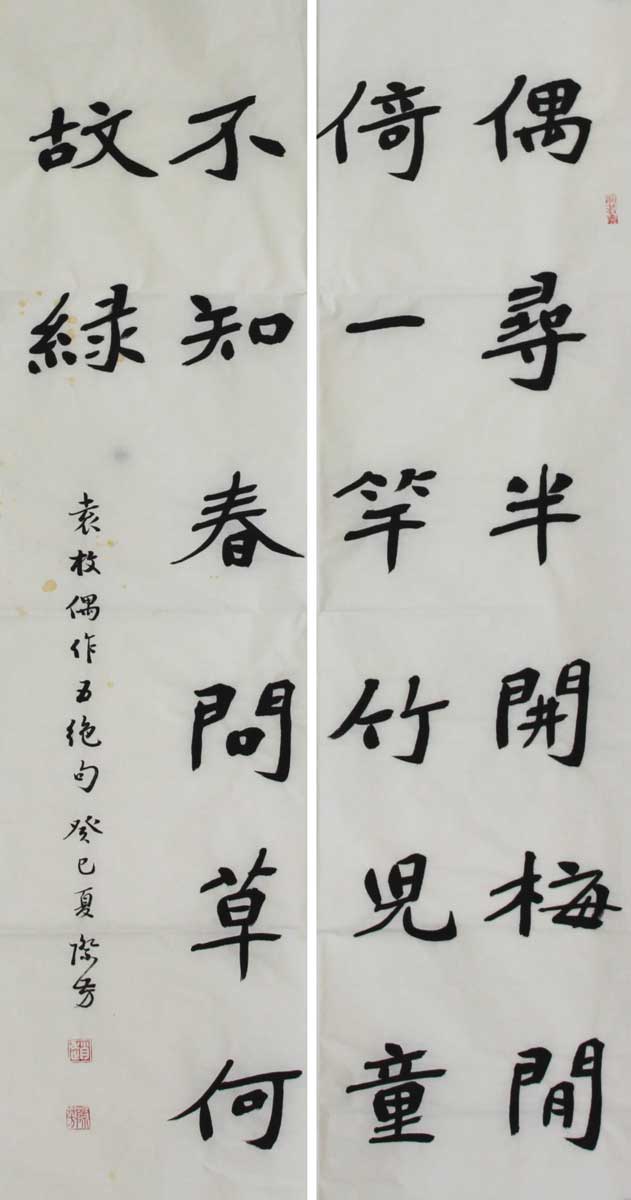 偶尋半開梅閒
倚一竿竹兒童
不知春問草何
故緑
袁枚偶作五绝句 癸巳夏 際芳